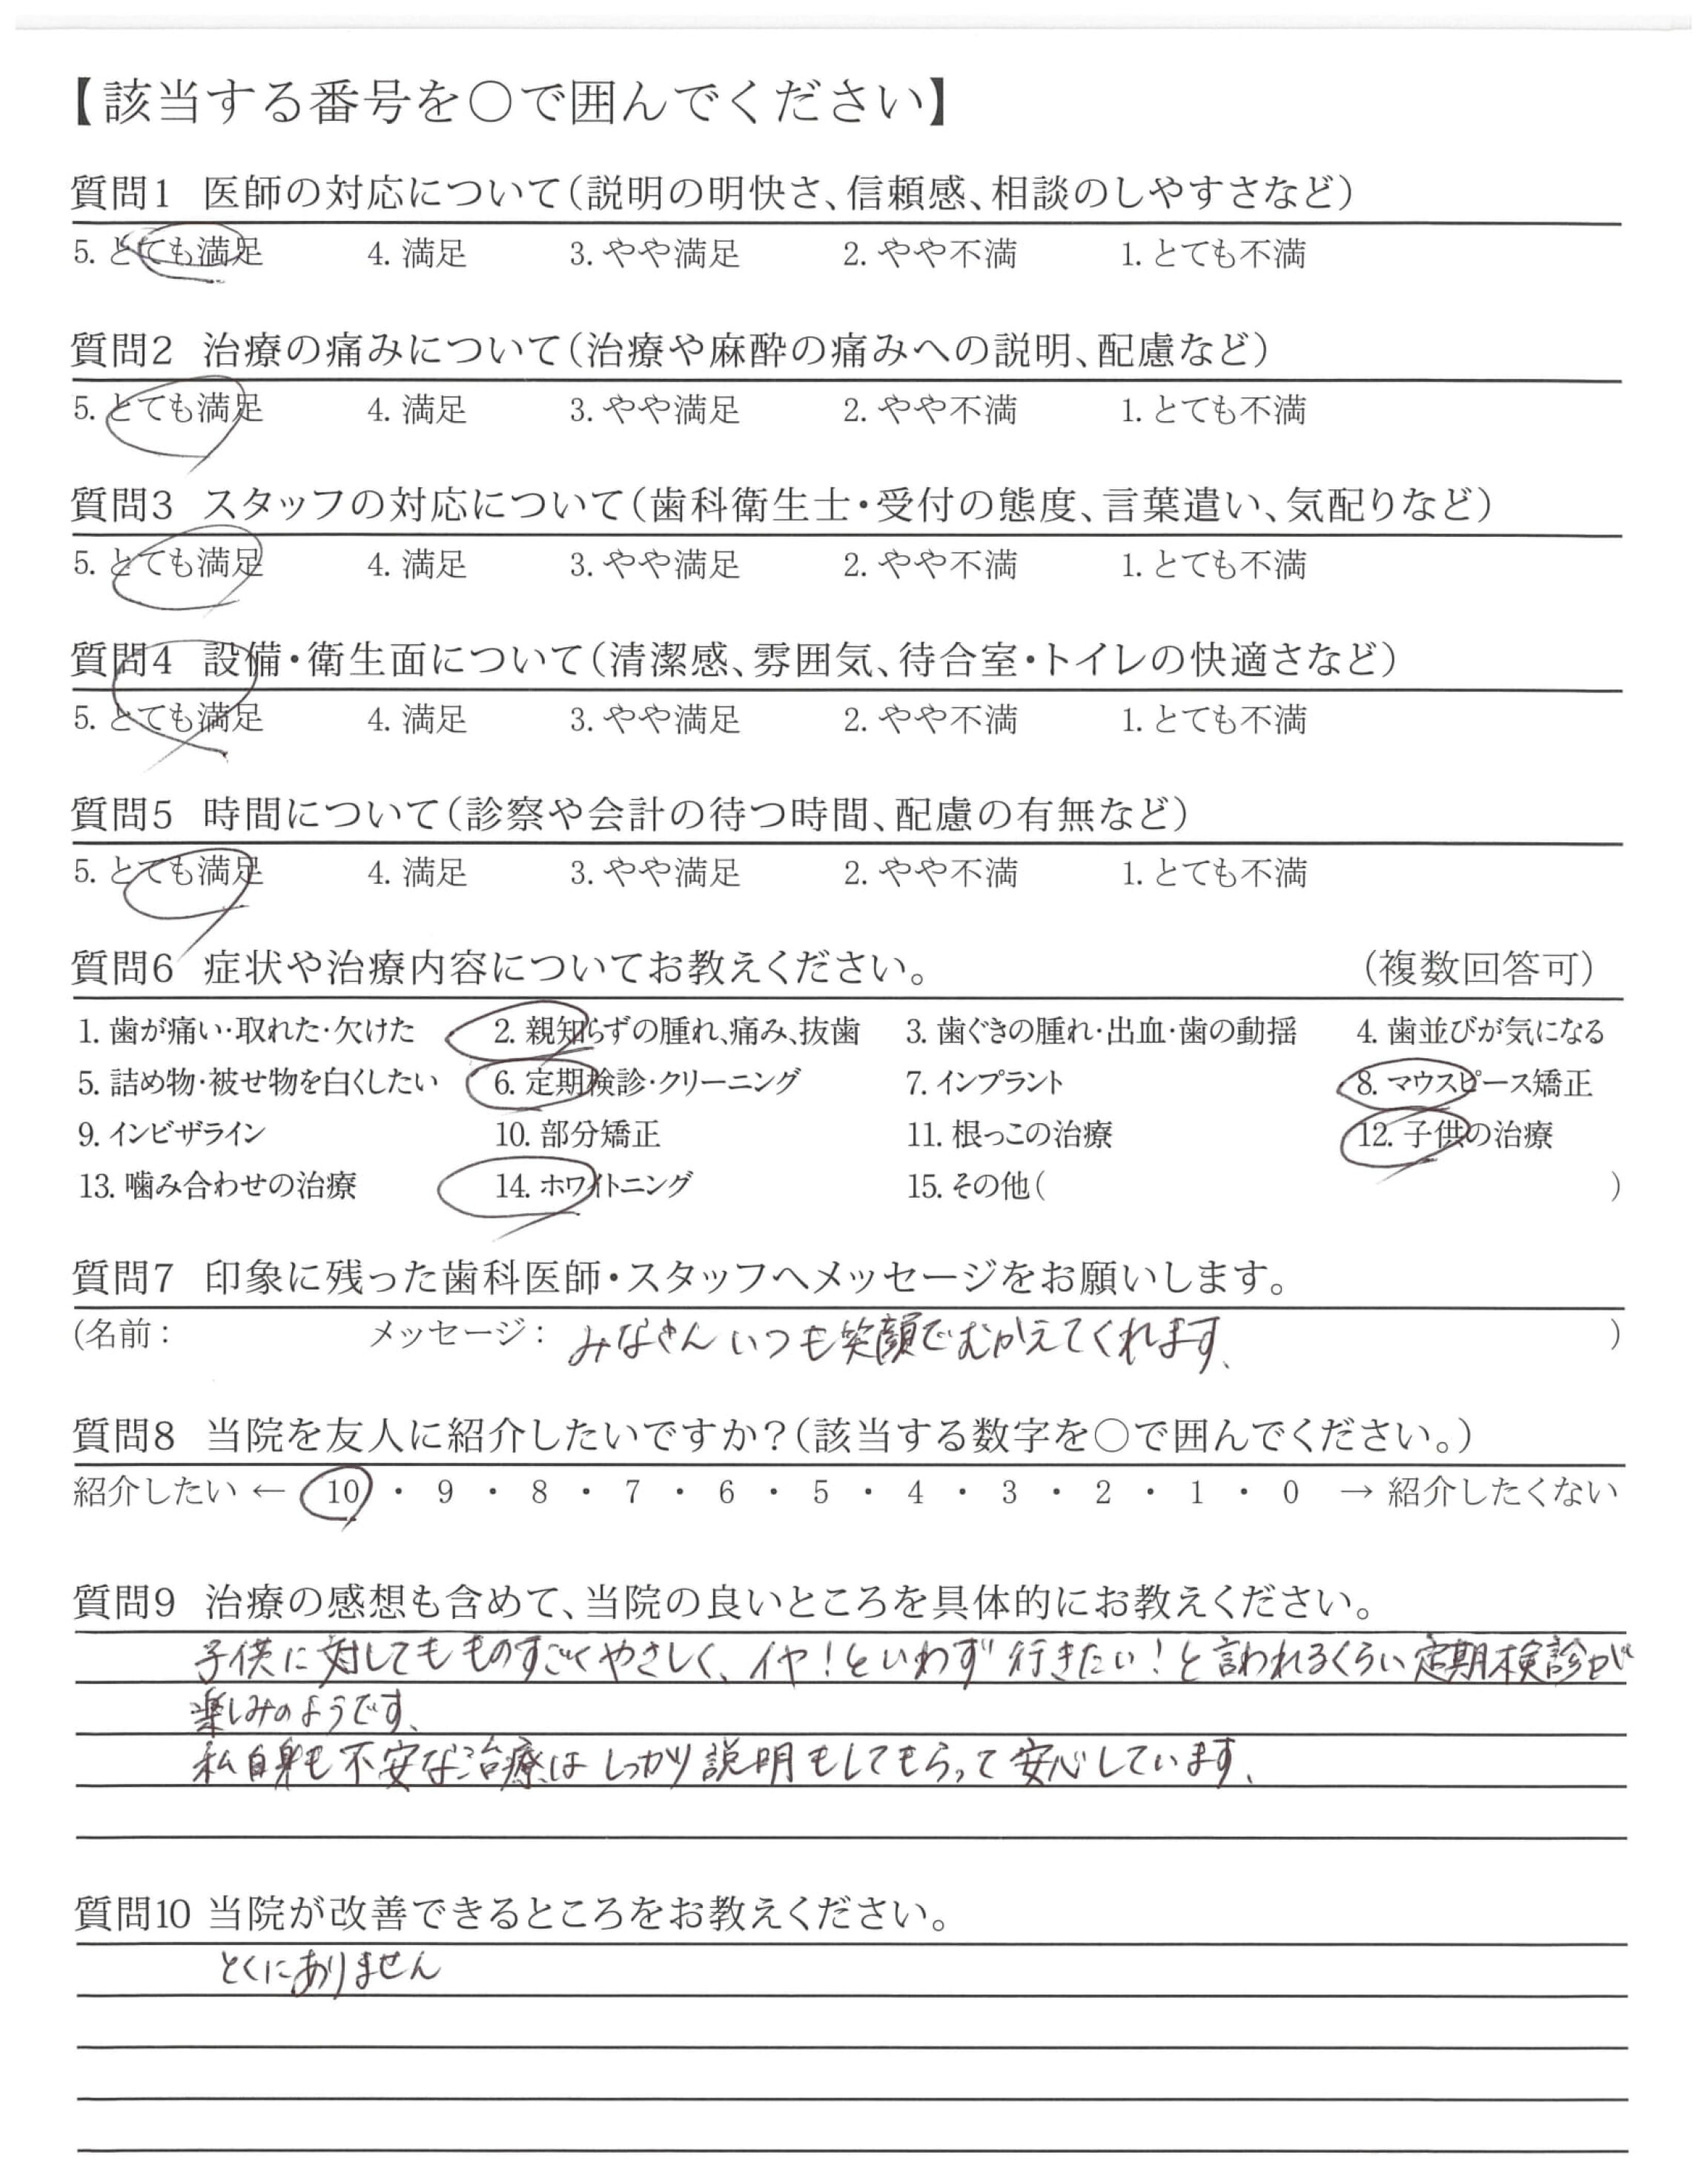 【該当する番号を○で囲んでください】
質問1 医師の対応について(説明の明快さ、信頼感、相談のしやすさなど)
5. とても満足 4. 満足 3. やや満足 2. やや不満 1. とても不満
質問2 治療の痛みについて(治療や麻酔の痛みへの説明、配慮など)
5. とても満足 4. 満足 3. やや満足 2. やや不満 1. とても不満
質問3 スタッフの対応について(歯科衛生士・受付の態度、言葉遣い、気配りなど)
5. とても満足 4. 満足 3. やや満足 2. やや不満 1. とても不満
質問4 設備・衛生面について(清潔感、雰囲気、待合室・トイレの快適さなど)
5. とても満足 4. 満足 3. やや満足 2. やや不満 1. とても不満
質問5 時間について(診察や会計の待つ時間、配慮の有無など)
5. とても満足 4. 満足 3. やや満足 2. やや不満 1. とても不満
質問6 症状や治療内容についてお教えください。 (複数回答可)
1. 歯が痛い・取れた・欠けた 2. 親知らずの腫れ、痛み、抜歯 3. 歯ぐきの腫れ・出血・歯の動揺 4. 歯並びが気になる
5. 詰め物・被せ物を白くしたい 6. 定期検診・クリーニング 7. インプラント 8. マウスピース矯正
9. インビザライン 10. 部分矯正 11. 根っこの治療 12. 子供の治療
13. 噛み合わせの治療 14. ホワイトニング 15. その他( )
質問7 印象に残った歯科医師・スタッフへメッセージをお願いします。
(名前: メッセージ: みなさんいつも笑顔でむかえてくれます、 )
質問8 当院を友人に紹介したいですか?(該当する数字を○で囲んでください。)
紹介したい ← 10 ・ 9 ・ 8 ・ 7 ・ 6 ・ 5 ・ 4 ・ 3 ・ 2 ・ 1 ・ 0 → 紹介したくない
質問9 治療の感想も含めて、当院の良いところを具体的にお教えください。
子供に対してもものすごくやさしく、イヤ!といわず行きたい!と言われるくらい定期検診が
楽しみのようです、
私自身も不安な治療はしっかり説明もしてもらって安心しています、
質問10 当院が改善できるところをお教えください。
とくにありません